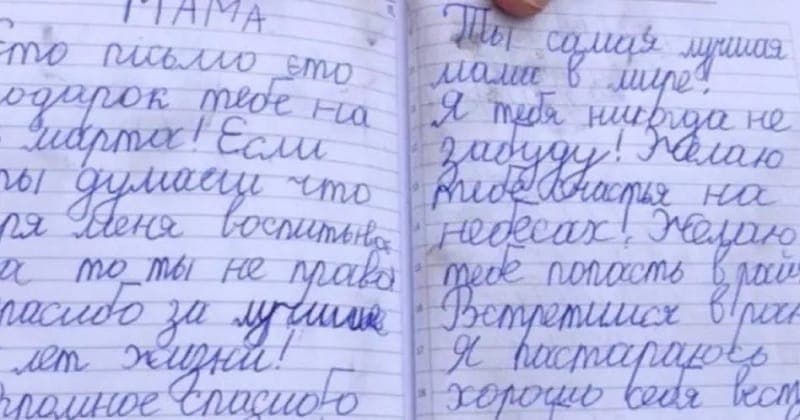 МАМА
Єто письмо єто
одарок тебе на
марта! Если
ты думаеш что
ря меня воспитыва
а то ты не права
пасибо за лучшие
лет жизни!
громное спасибо
Ты самая лучшая
мама в мире!
Я тебя никогда не
забуду! Желаю
тебе счастья на
небесах! Желаю
тебе попасть в рай
Встретимся в раю
Я пастараюсь
хорошо себя вест